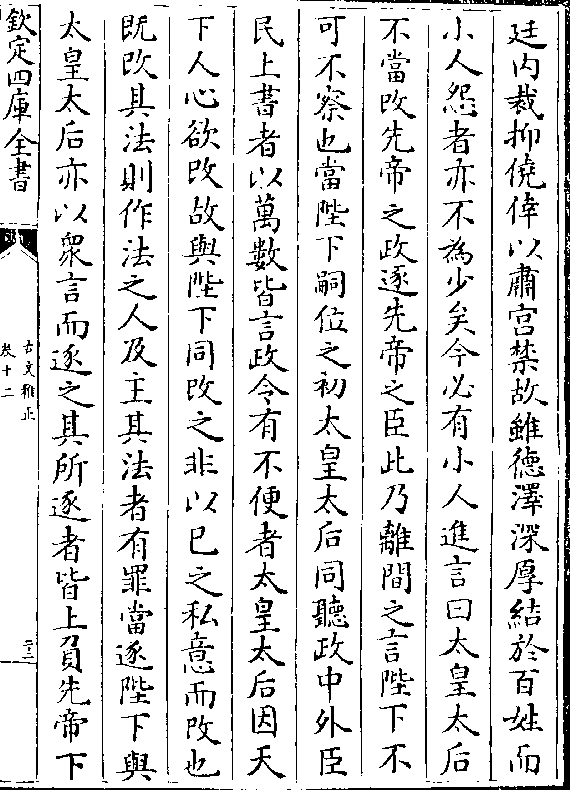 廷内裁抑僥倖以肅宫禁故雖德澤深厚結於百姓而
小人怨者亦不為少矣今必有小人進言曰太皇太后
不當改先帝之政逐先帝之臣此乃離間之言陛下不
可不察也當陛下嗣位之初太皇太后同聽政中外臣
民上書者以萬數皆言政令有不便者太皇太后因天
下人心欲改故與陛下同改之非以已之私意而改也
既改其法則作法之人及主其法者有罪當逐陛下與
太皇太后亦以衆言而逐之其所逐者皆上負先帝下
欽定四庫全書
古文雅正
卷十二